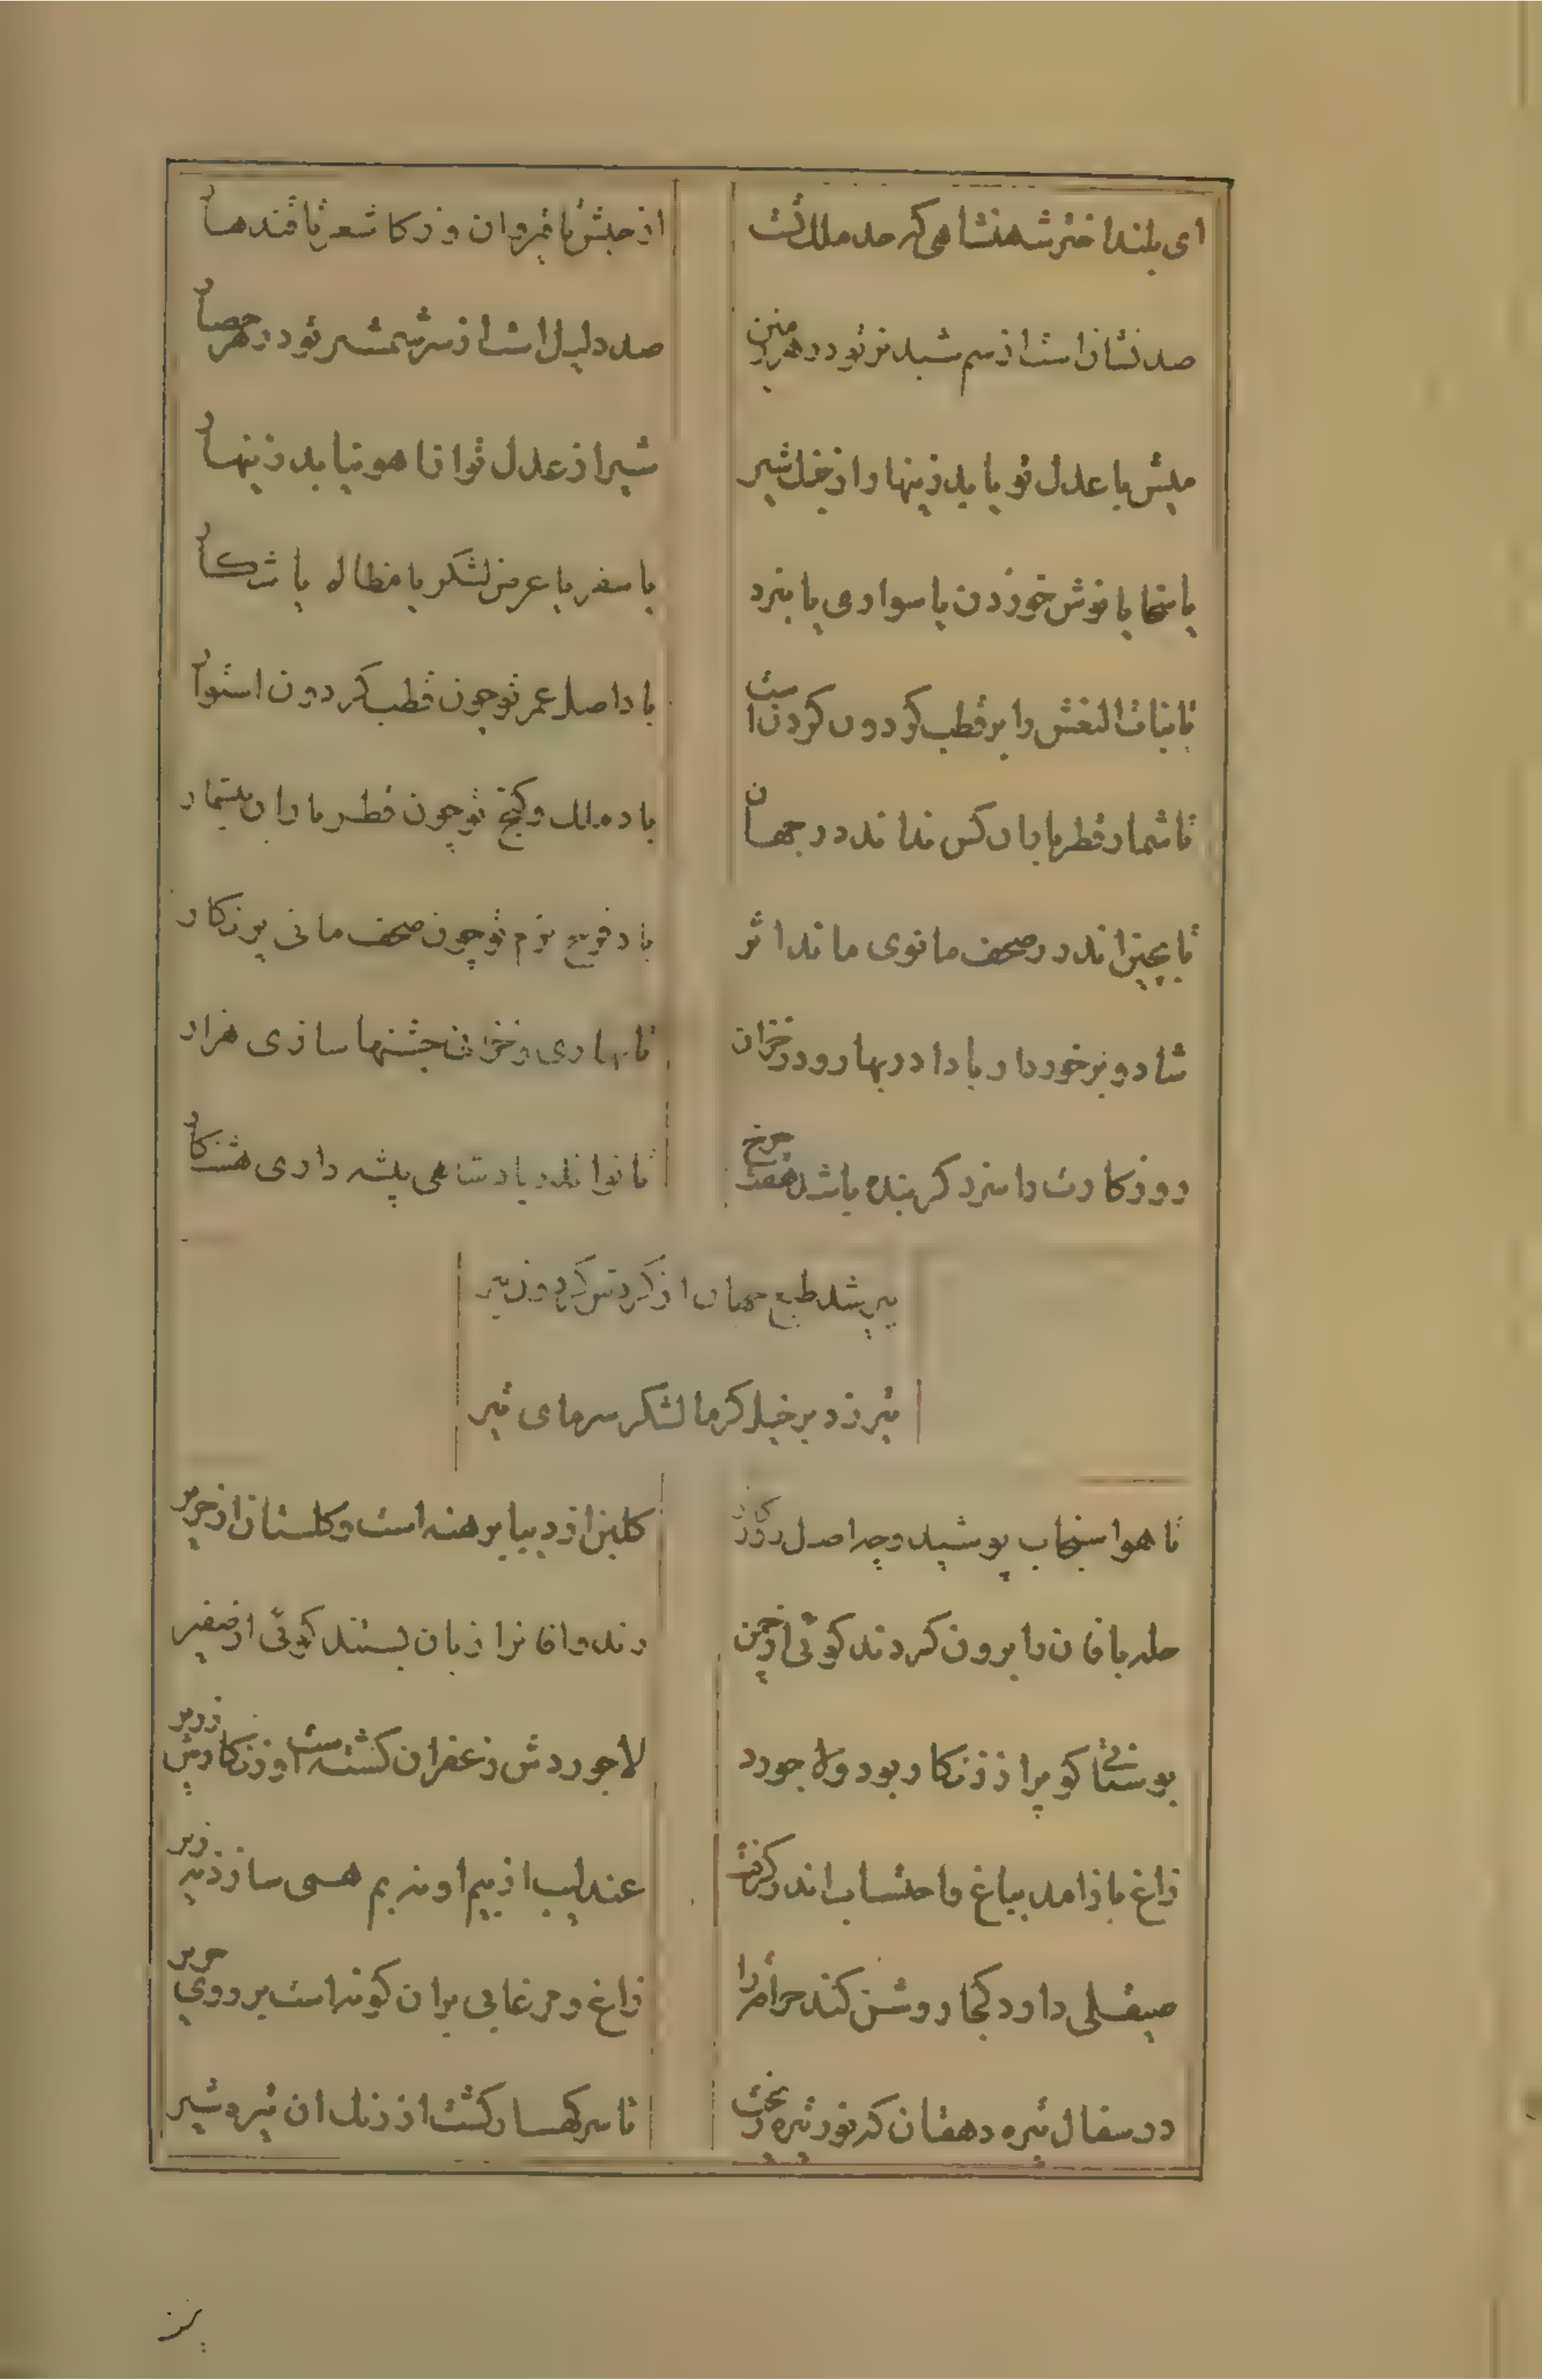 ای بلند اختر شهنشاهی که حد ملک تست
از حبش تا قیروان وز کاشغر تا قندهار
صد نشان است از سم شبدیز تو در هر زمین
صد دلیل است از سر شمشیر تو در هر حصار
میش با عدل تو یابد زینهار از خیل شیر
شیر از عدل تو از آهو نیابد زینهار
یا سخا یا نوش خوردن یا سواری یا نبرد
یا سفر یا عرض لشکر یا مظالم یا شکار
تا بنات النعش را بر قطب گردون گردن است
باد اصل عمر تو چون قطب گردون استوار
تا شمار قطر باران کس نداند در جهان
باد ملک و گنج تو چون قطر باران بیشمار
تا بچین اندر صحف مانوی ماند اثر
باد فرخ بزم تو چون صحف مانی پرنگار
شاد و برخوردار بادا در بهار و در خزان
تا بهاری و خزان جشنها سازی هزار
روزگارت را سزد گر بنده باشد هفت چرخ
تا تو اندر پادشاهی پیشه داری هشت کار
پیر شد طبع جهان از گردش گردون پیر
تیر زد بر خیل گرما لشکر سرمای تیر
تا هوا سنجاب پوشید و حواصل کوه و در
گلبن از دیبا برهنه است و گلستان از حریر
حله بافان را برون کردند گوئی از چمن
زند وافان را زبان بستند گوئی از صفیر
بوستانی کو پر از زنگار بود و لاجورد
لاجوردش زعفران گشته است و زنگارش زریر
زاغ باز آمد بباغ و احتساب اندر گرفت
عندلیب از بیم او نه بم همی سازد نه زیر
صیقلی دارد کجا روشن کند مرآة را
زاغ و مرغابی بر آن گونه است بر روی حریر
در سفال تیره دهقان کرد نور تیره رخت
تا سر کهسار گشت از رنگ آن تیره و شیر